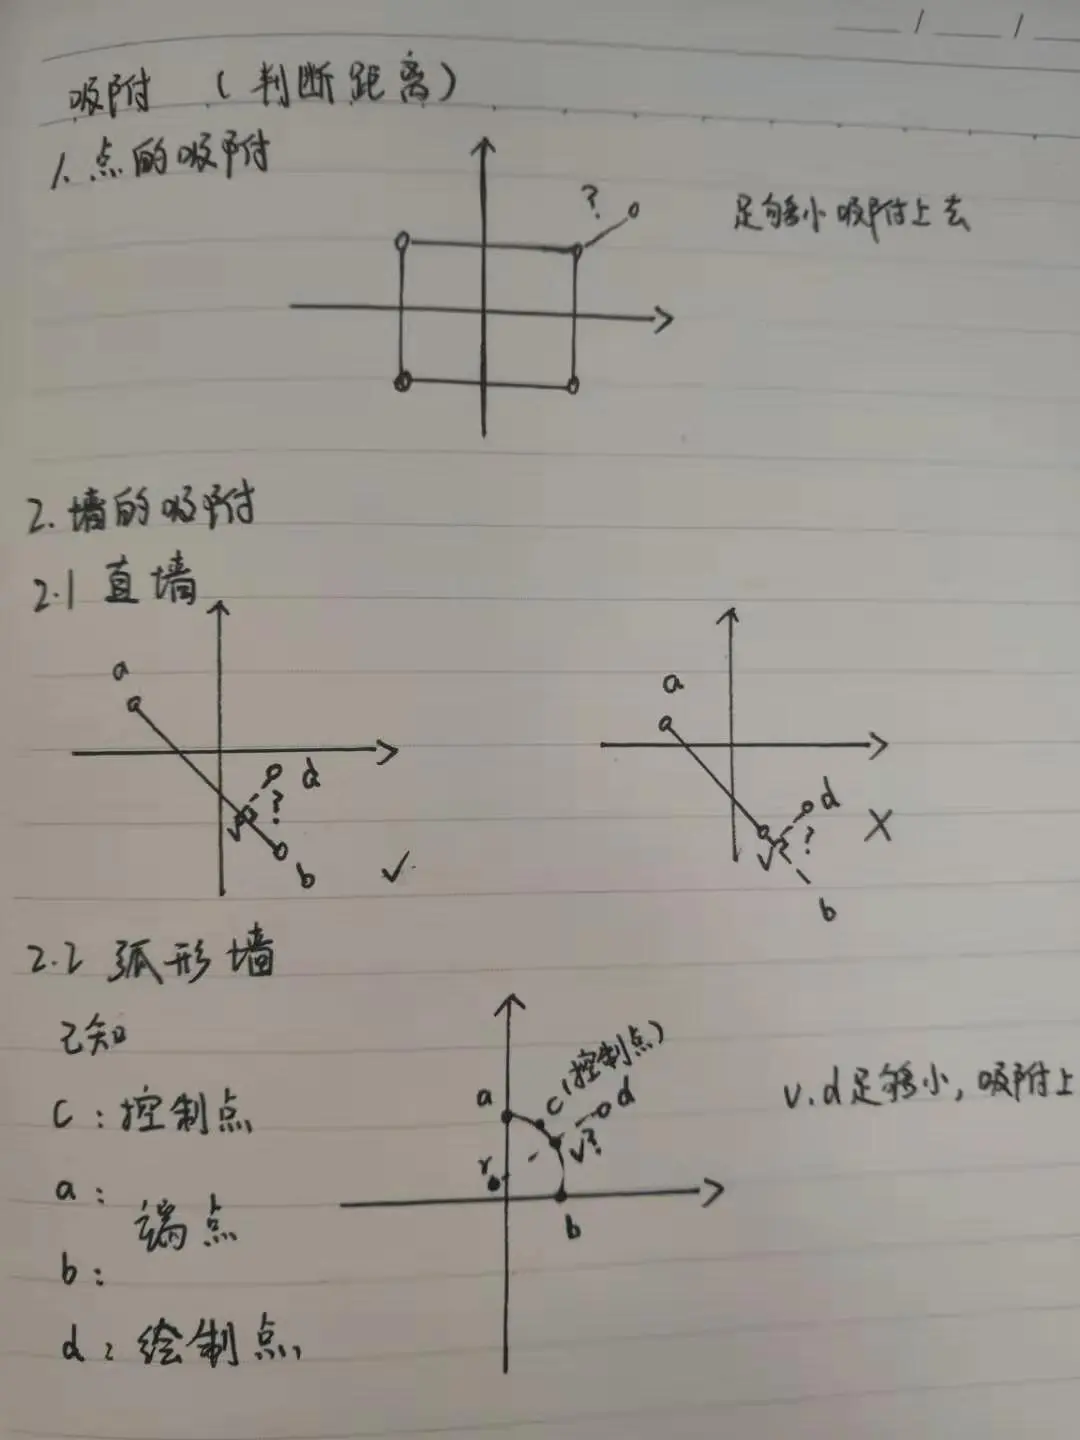 吸附 （判断距离）
1、点的吸附
?
足够小吸附上去
2.墙的吸附
2.1 直墙
a
d
?
v
b
✓
a
d
?
v
b
X
2.2 弧形墙
已知
c（控制点）
a
d
v?
r
b
v.d足够小，吸附上
c：控制点
a：
端点
b：
d：绘制点